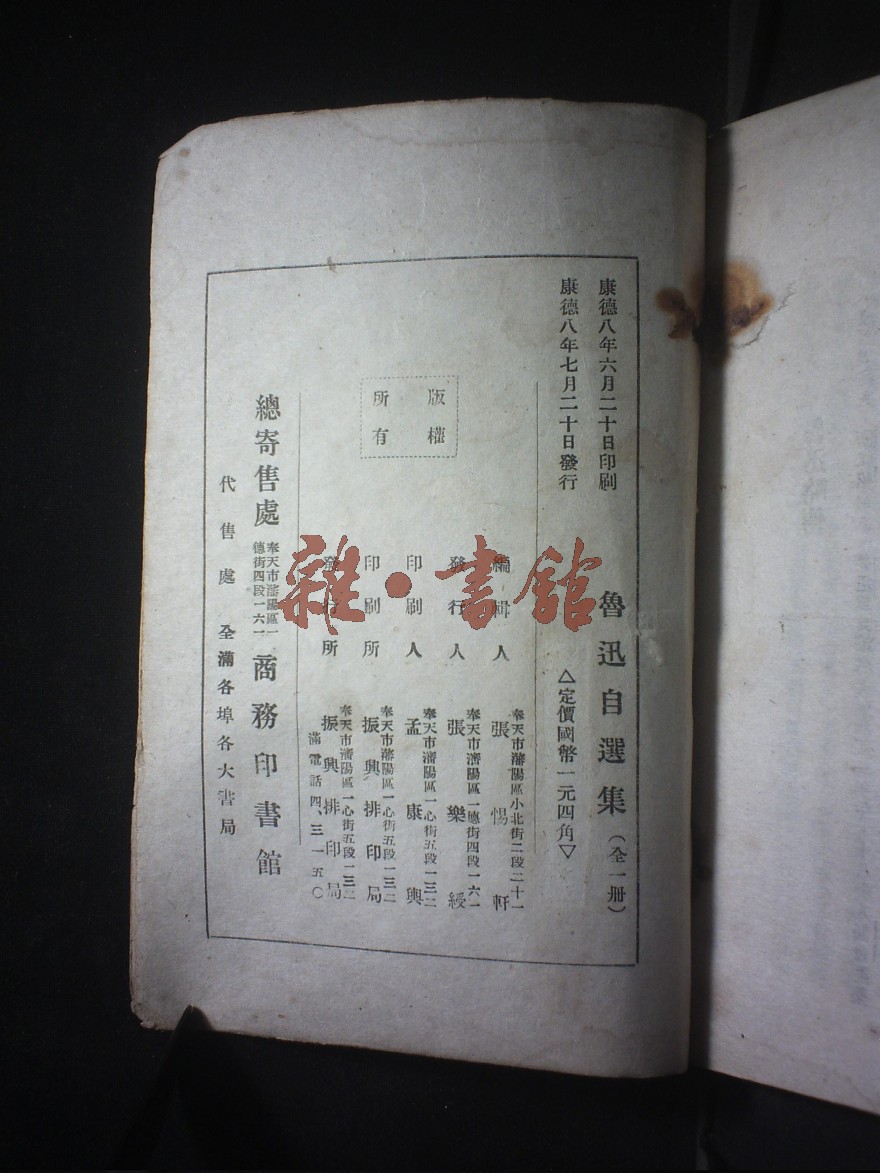 康德八年六月二十日印刷
康德八年七月二十日發行
魯迅自選集（全一册）
△定價國幣一元四角▽
版權
所有
編輯人
奉天市瀋陽區小北街二段二十一
張惕軒
發行人
奉天市瀋陽區一德街四段一六一
張樂綬
印刷人
奉天市瀋陽區一心街五段一三二
孟康興
印刷所
奉天市瀋陽區一心街五段一三二
振興排印局
發行所
奉天市瀋陽區一心街五段一三二
振興排印局
滿電話四、三一五〇
總寄售處
奉天市瀋陽區一
德街四段一六一
商務印書館
代售處 全滿各埠各大書局
雜·書館